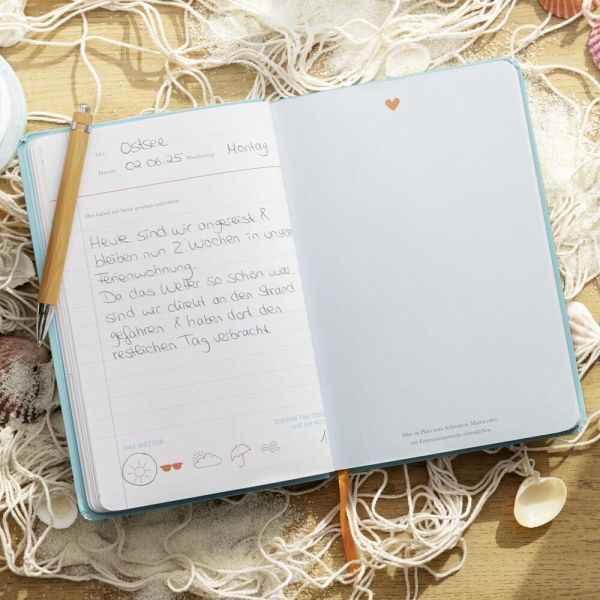 Ort: Ostsee
Datum: 02.06.25 Wochentag: Montag
Das haben wir heute gesehen und erlebt:
Heute sind wir angereist &
bleiben nun 2 Wochen in unser
Ferienwohnung.
Da das Wetter so schön war
sind wir direkt an den Strand
gefahren & haben dort den
restlichen Tag verbracht.
DIESEM TAG
DAS WETTER:
1
Hier ist Platz zum Schreiben, Malen oder
um Erinnerungsstücke einzukleben.